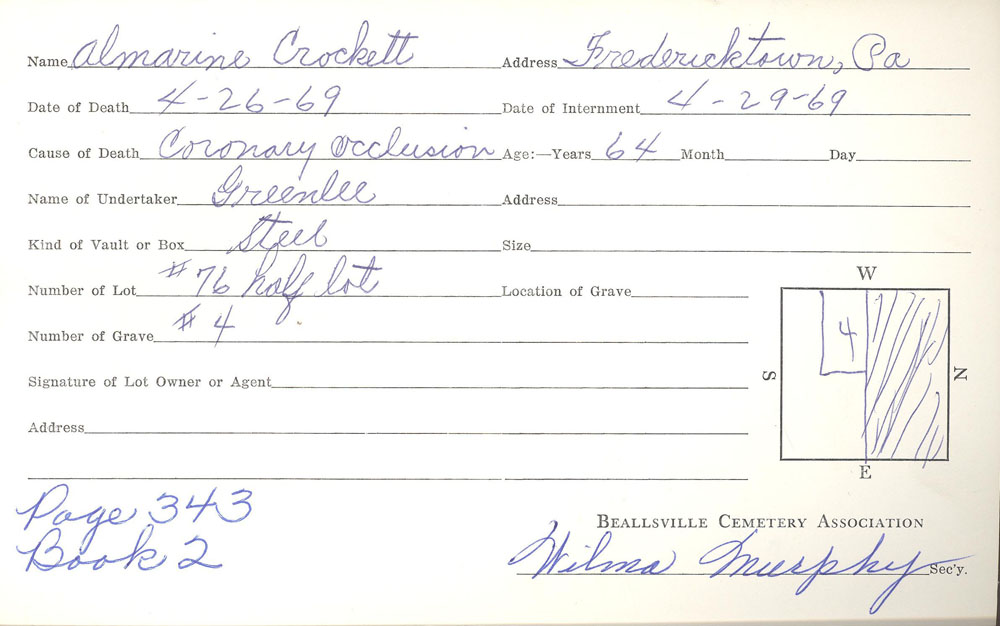 Name Almarine Crockett Address Fredericktown, Pa
Date of Death 4-26-69 Date of Internment 4-29-69
Cause of Death Coronary Occlusion Age:—Years 64 Month Day
Name of Undertaker Greenlee Address
Kind of Vault or Box Steel Size
Number of Lot #76 half lot Location of Grave
Number of Grave #4
Signature of Lot Owner or Agent
Address
W
4
S
N
E
Page 343
Book 2
Beallsville Cemetery Association
Wilma Murphy Sec'y.